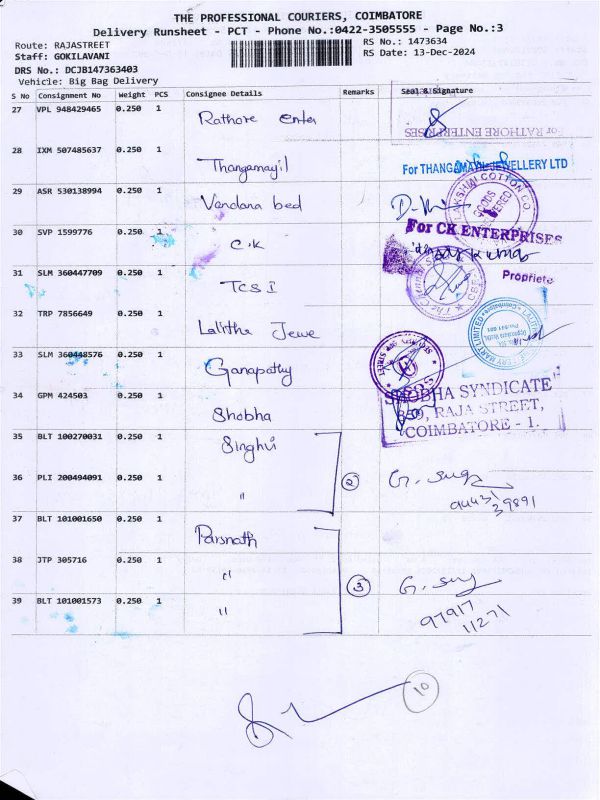 THE PROFESSIONAL COURIERS, COIMBATORE
Delivery Runsheet - PCT - Phone No.:0422-3505555 - Page No.:3
Route: RAJASTREET
RS No.: 1473634
Staff: GOKILAVANI
RS Date: 13-Dec-2024
DRS No.: DCJB147363403
Vehicle: Big Bag Delivery
S No Consignment No Weight PCS Consignee Details Remarks Seal & Signature
27 VPL 948429465 0.250 1 Rathore enter
For RATHORE ENTERPRISES
28 IXM 507485637 0.250 1 Thangamayil
For THANGAMAYIL JEWELLERY LTD
29 ASR 530138994 0.250 1 Vandana bed
LAKSHMI COTTON CO.
GOODS
30 SVP 1599776 0.250 1 C.K
For CK ENTERPRISES
31 SLM 360447709 0.250 1 TCSI
Propriete
32 TRP 7856649 0.250 1 Lalitha Jewe
33 SLM 360448576 0.250 1 Ganapathy
34 GPM 424503 0.250 1 Shobha
SHOBHA SYNDICATE
859, RAJA STREET,
COIMBATORE - 1.
35 BLT 100270031 0.250 1 Singhvi
36 PLI 200494091 0.250 1 " 2
94431
39891
37 BLT 101001650 0.250 1 Parsnath
38 JTP 305716 0.250 1 " 3
39 BLT 101001573 0.250 1 "
97917
11271
10